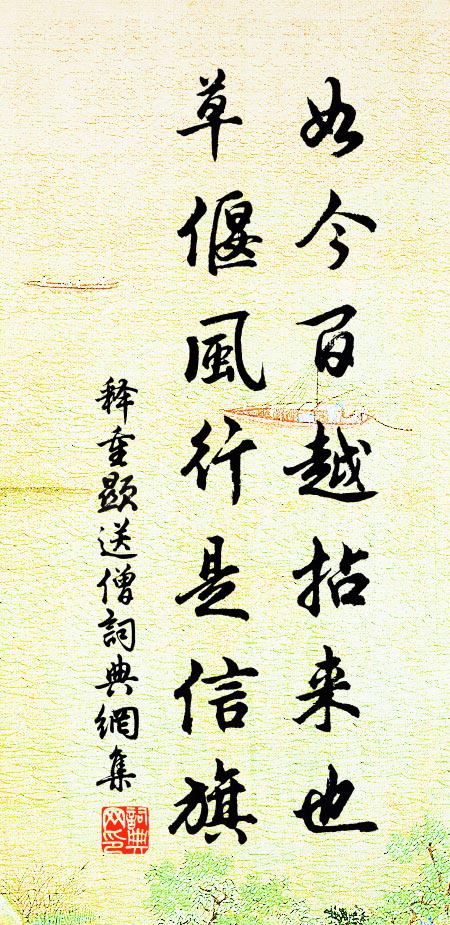 如今百越拈来也
草偃風行是信旗
释重顯送僧詞典網集
詞典网印